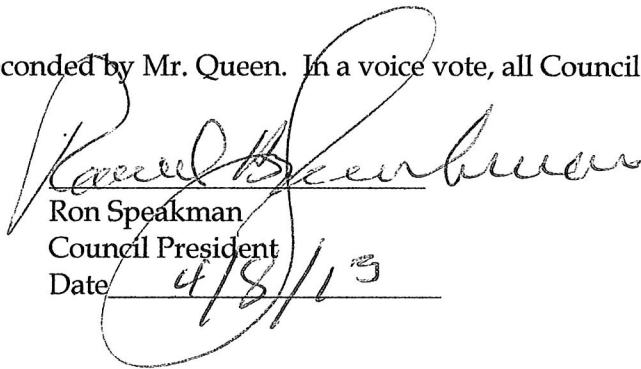 conded by Mr. Queen. In a voice vote, all Council
Ron Speakman
Council President
Date 4/8/13